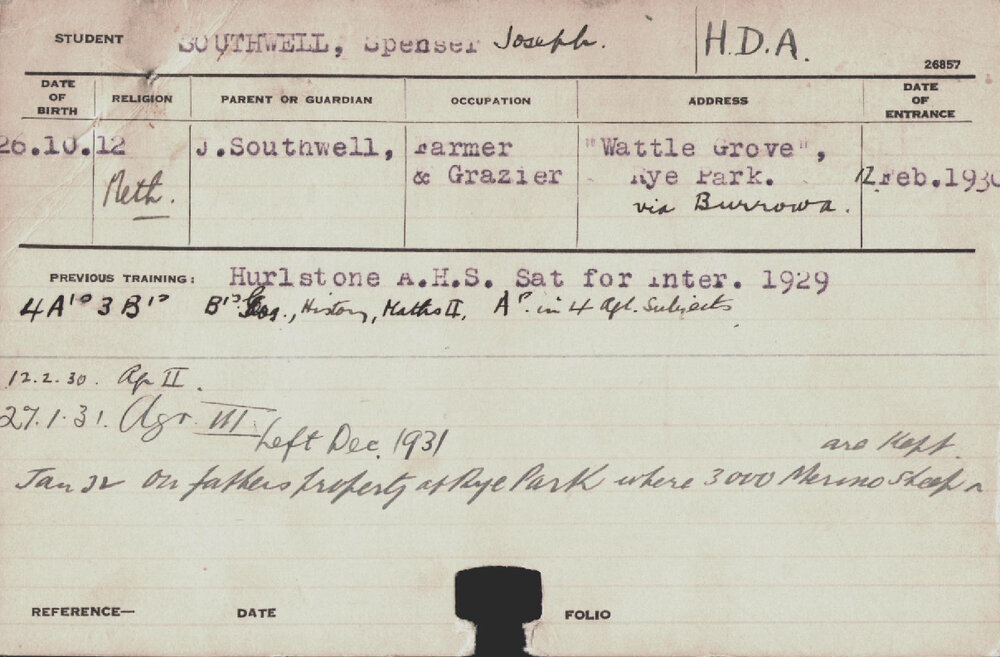 STUDENT SOUTHWELL, Spenser Joseph. H.D.A.
26857
DATE OF BIRTH RELIGION PARENT OR GUARDIAN OCCUPATION ADDRESS DATE OF ENTRANCE
26.10.12 J.Southwell, Farmer "Wattle Grove",
Meth. & Grazier Rye Park. 12 Feb.1930
via Burrowa.
PREVIOUS TRAINING: Hurlstone A.H.S. Sat for Inter. 1929
4A's 3 B's B's Geog., History, Maths II, A's in 4 Agl. Subjects
12.2.30. Ag II.
27.1.31. Agr. III.
Left Dec. 1931
are Kept.
Jan 32 On fathers property at Rye Park where 3000 Merino Sheep ^
REFERENCE— DATE FOLIO